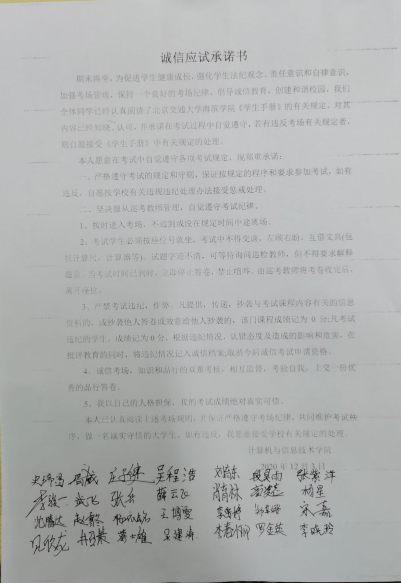 诚信应试承诺书
期末将至,为促进学生健康成长,强化学生法纪观念、责任意识和自律意识,
加强考场管理,保持一个良好的考场纪律,倡导诚信教育,创建和谐校园,我们
全体同学已经认真阅读了北京交通大学海滨学院《学生手册》的有关规定,对其
内容已经知晓、认可,并承诺在考试过程中自觉遵守,若有违反考场有关规定者,
将自愿接受《学生手册》中有关规定的处理。
本人愿意在考试中自觉遵守各项考试规定,现郑重承诺:
一、严格遵守考试的规定和守则,保证按规定的程序和要求参加考试,如有
违反,自愿按学校有关违规违纪处理办法接受惩戒处理。
二、坚决服从监考教师管理,自觉遵守考试纪律。
1、按时进入考场,不迟到或在规定时间中途离场。
2、考试学生必须按座位号就坐,考试中不得交谈、左顾右盼、互借文具(包
括计算尺、计算器等),试题字迹不清,可等待询问巡检教师,但不得要求解释
题意,当考试时间已到时,立即停止答卷,禁止喧哗,由监考教师将考卷收完后,
离开座位。
3、严禁考试违纪、作弊。凡提供、传递、抄袭与考试课程内容有关的信息
资料的,或抄袭他人答卷或故意给他人抄袭的,该门课程成绩记为 0 分;凡考试
违纪的学生,成绩记为0分,根据违纪情况、认错态度及造成的影响和危害,在
批评教育的同时,将违纪情况记入诚信档案,取消今后诚信考试申请资格。
4、诚信考场,知识和品行的双重考核,相互监督,考验自我,上交一份优
秀的品行答卷。
5、我以自己的人格担保,我的考试成绩绝对真实可信。
本人已认真阅读上述考场规则,并保证严格遵守考场纪律,共同维护考试秩
序,做一名诚实守信的大学生,如有违反,我愿意接受学校有关规定的处理。
计算机与信息技术学院
2020年12月3日
吴程浩 张紫洋
武飞 薛云飞 杨星
王博雯 宋嘉
李晓玲